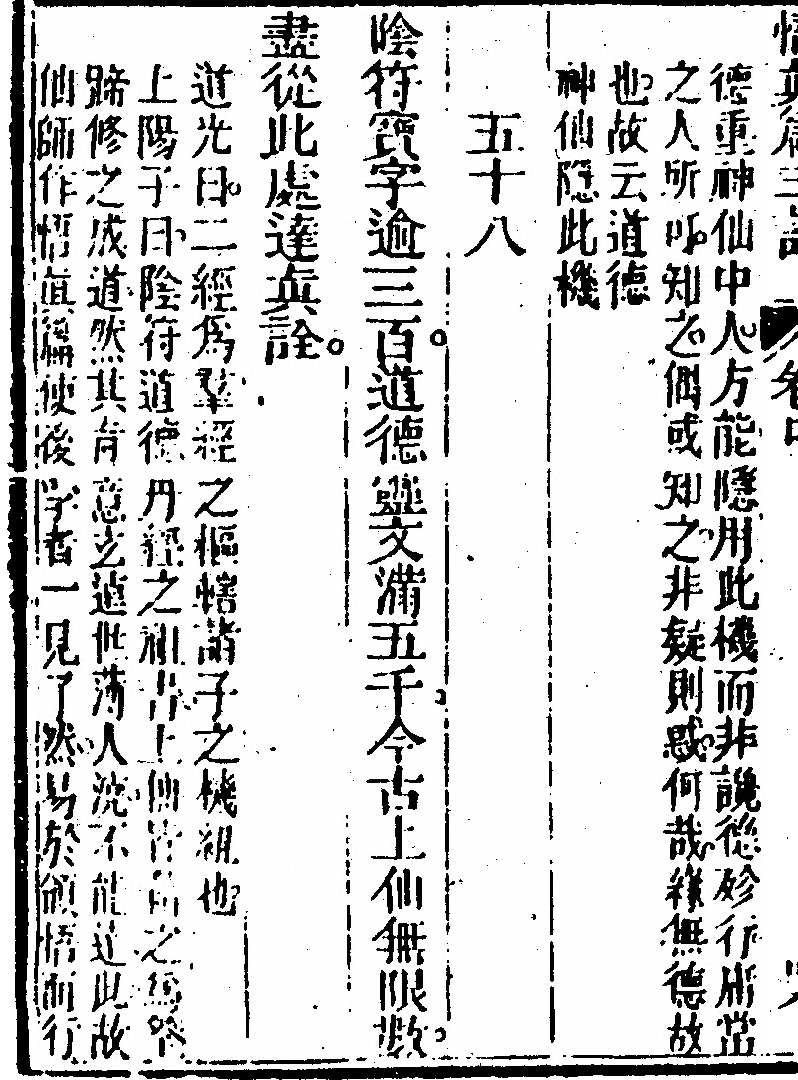 悟真篇三註 卷中
德重神仙中人方能隱用此機而非讒德殄行庸常
之人所可知之偶或知之非疑則惑何哉緣無德故
也故云道德
神仙隱此機
五十八
陰符寶字逾三百道德靈文滿五千今古上仙無限數
盡從此處達眞詮
道光曰二經爲羣經之樞轄諸子之機紐也
上陽子曰陰符道德丹經之祖書上仙皆藉之爲筌
蹄修之成道然其旨意玄遠世薄人澆不能達此故
仙師作悟眞篇使後學者一見了然易於領悟而行